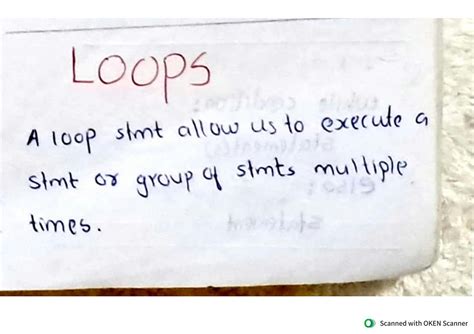 LOOPS
A loop stmt allow us to execute a
stmt or group of stmts multiple
times.
Scanned with OKEN Scanner